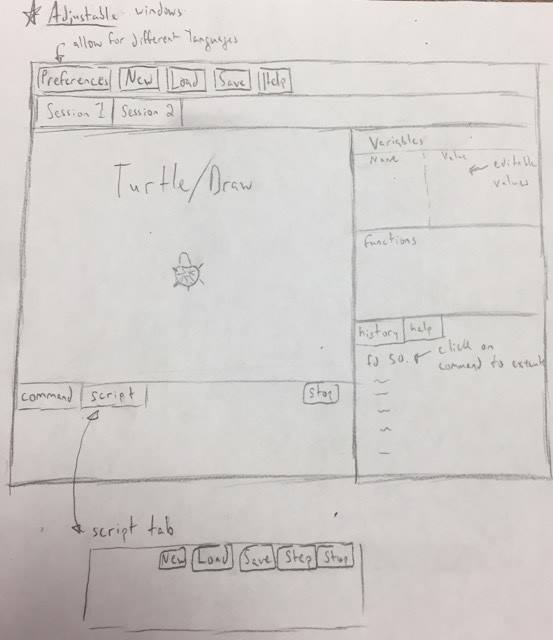 Adjustable windows
allow for different languages
Preferences New Load Save Help
Session 1 Session 2
Turtle/Draw
Variables
Name Value
editable
values
functions
history help
fd 50.
click on
command to
command script Stop
script tab
New Load Save Step Stop